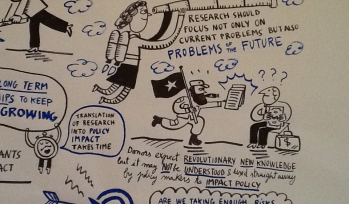 RESEARCH SHOULD
FOCUS NOT ONLY ON
CURRENT PROBLEMS BUT ALSO
PROBLEMS OF THE FUTURE
LONG TERM
TO KEEP
GROWING
TRANSLATION
OF RESEARCH
INTO POLICY
IMPACT
TAKES TIME
???
$
Donors expect REVOLUTIONARY NEW KNOWLEDGE
but it may NOT be UNDERSTOOD & used straight away
by policy makers to IMPACT POLICY
ARE WE TAKING ENOUGH RISKS